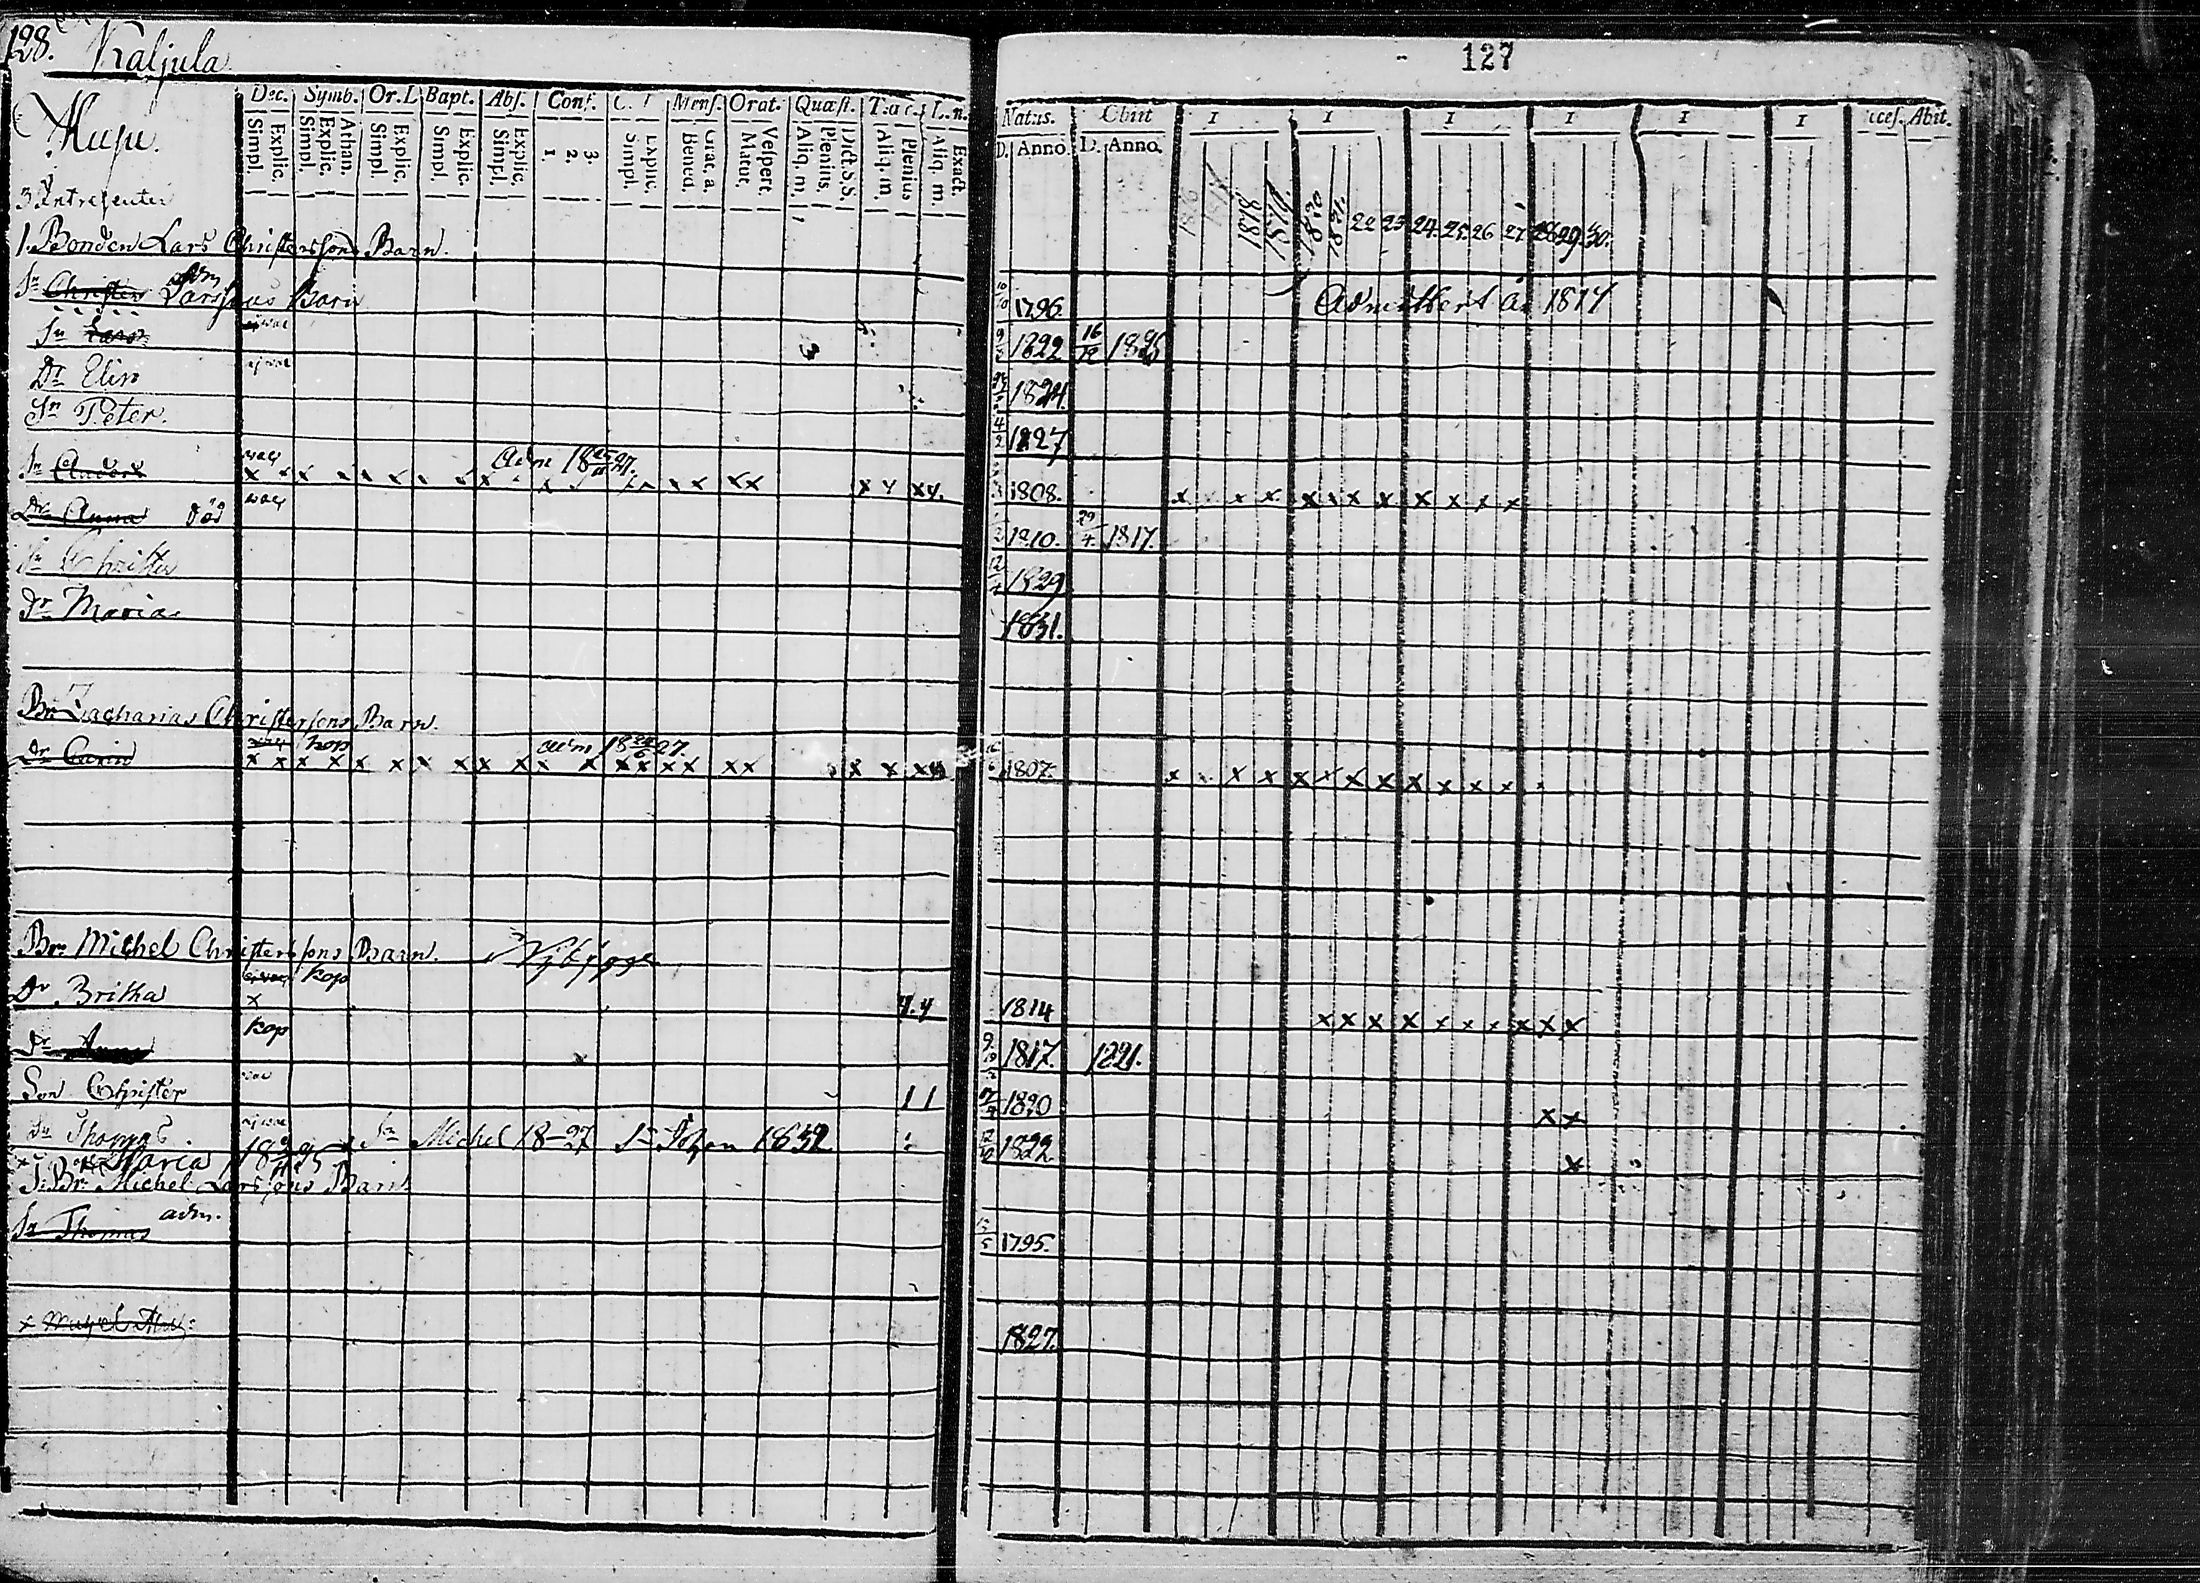 128. Kaljula
127
Dec. Symb. Or.L Bapt. Abs. Conf. C. Mens. Orat. Quæst. T.a c. L.n.
Simpl. Explic. Simpl. Explic. Athan. Simpl. Explic. Simpl. Explic. Simpl. Explic. 1. 2. 3. Simpl. Explic. Bened. Grat. a. Matut. Vespert. Aliq. m. Plenius. Dict. S.S. Aliq. m. Plenius Aliq. m. Exact.
Natus. Obiit I I I I I I Abit.
D. Anno D. Anno.
1818 1819 1820 1821. 22 23 24. 25. 26 27 28 29. 30.
1. Bonden Lars Christerssons Barn.
Sn Christer adm Larssons Barn 1796. Admittert år 1817
Sn Lars 9 1822 16 1826
Dr Elin 1824.
Sn Peter. 4/2 1827
Sn Anders adm 1827. 1808.
Dr Anna död 1810. 29/4 1817.
Sn Christer 12 1829
Dr Maria 1831.
Br. Zacharias Christerssons Barn.
Dr Carin kop adm 1827. 1807.
Br. Michel Christerssons Barn. Nybygge
Dr Britha kop 1814
Dr Anna kop 9 1817. 1821.
Son Christer 1820
Sn Thomas 1822
Maria 1825 Sn Michel 18-27 Sn Johan 1832
Br Michel Larssons Barn
Sn Thomas adm. 5 1795.
1827.